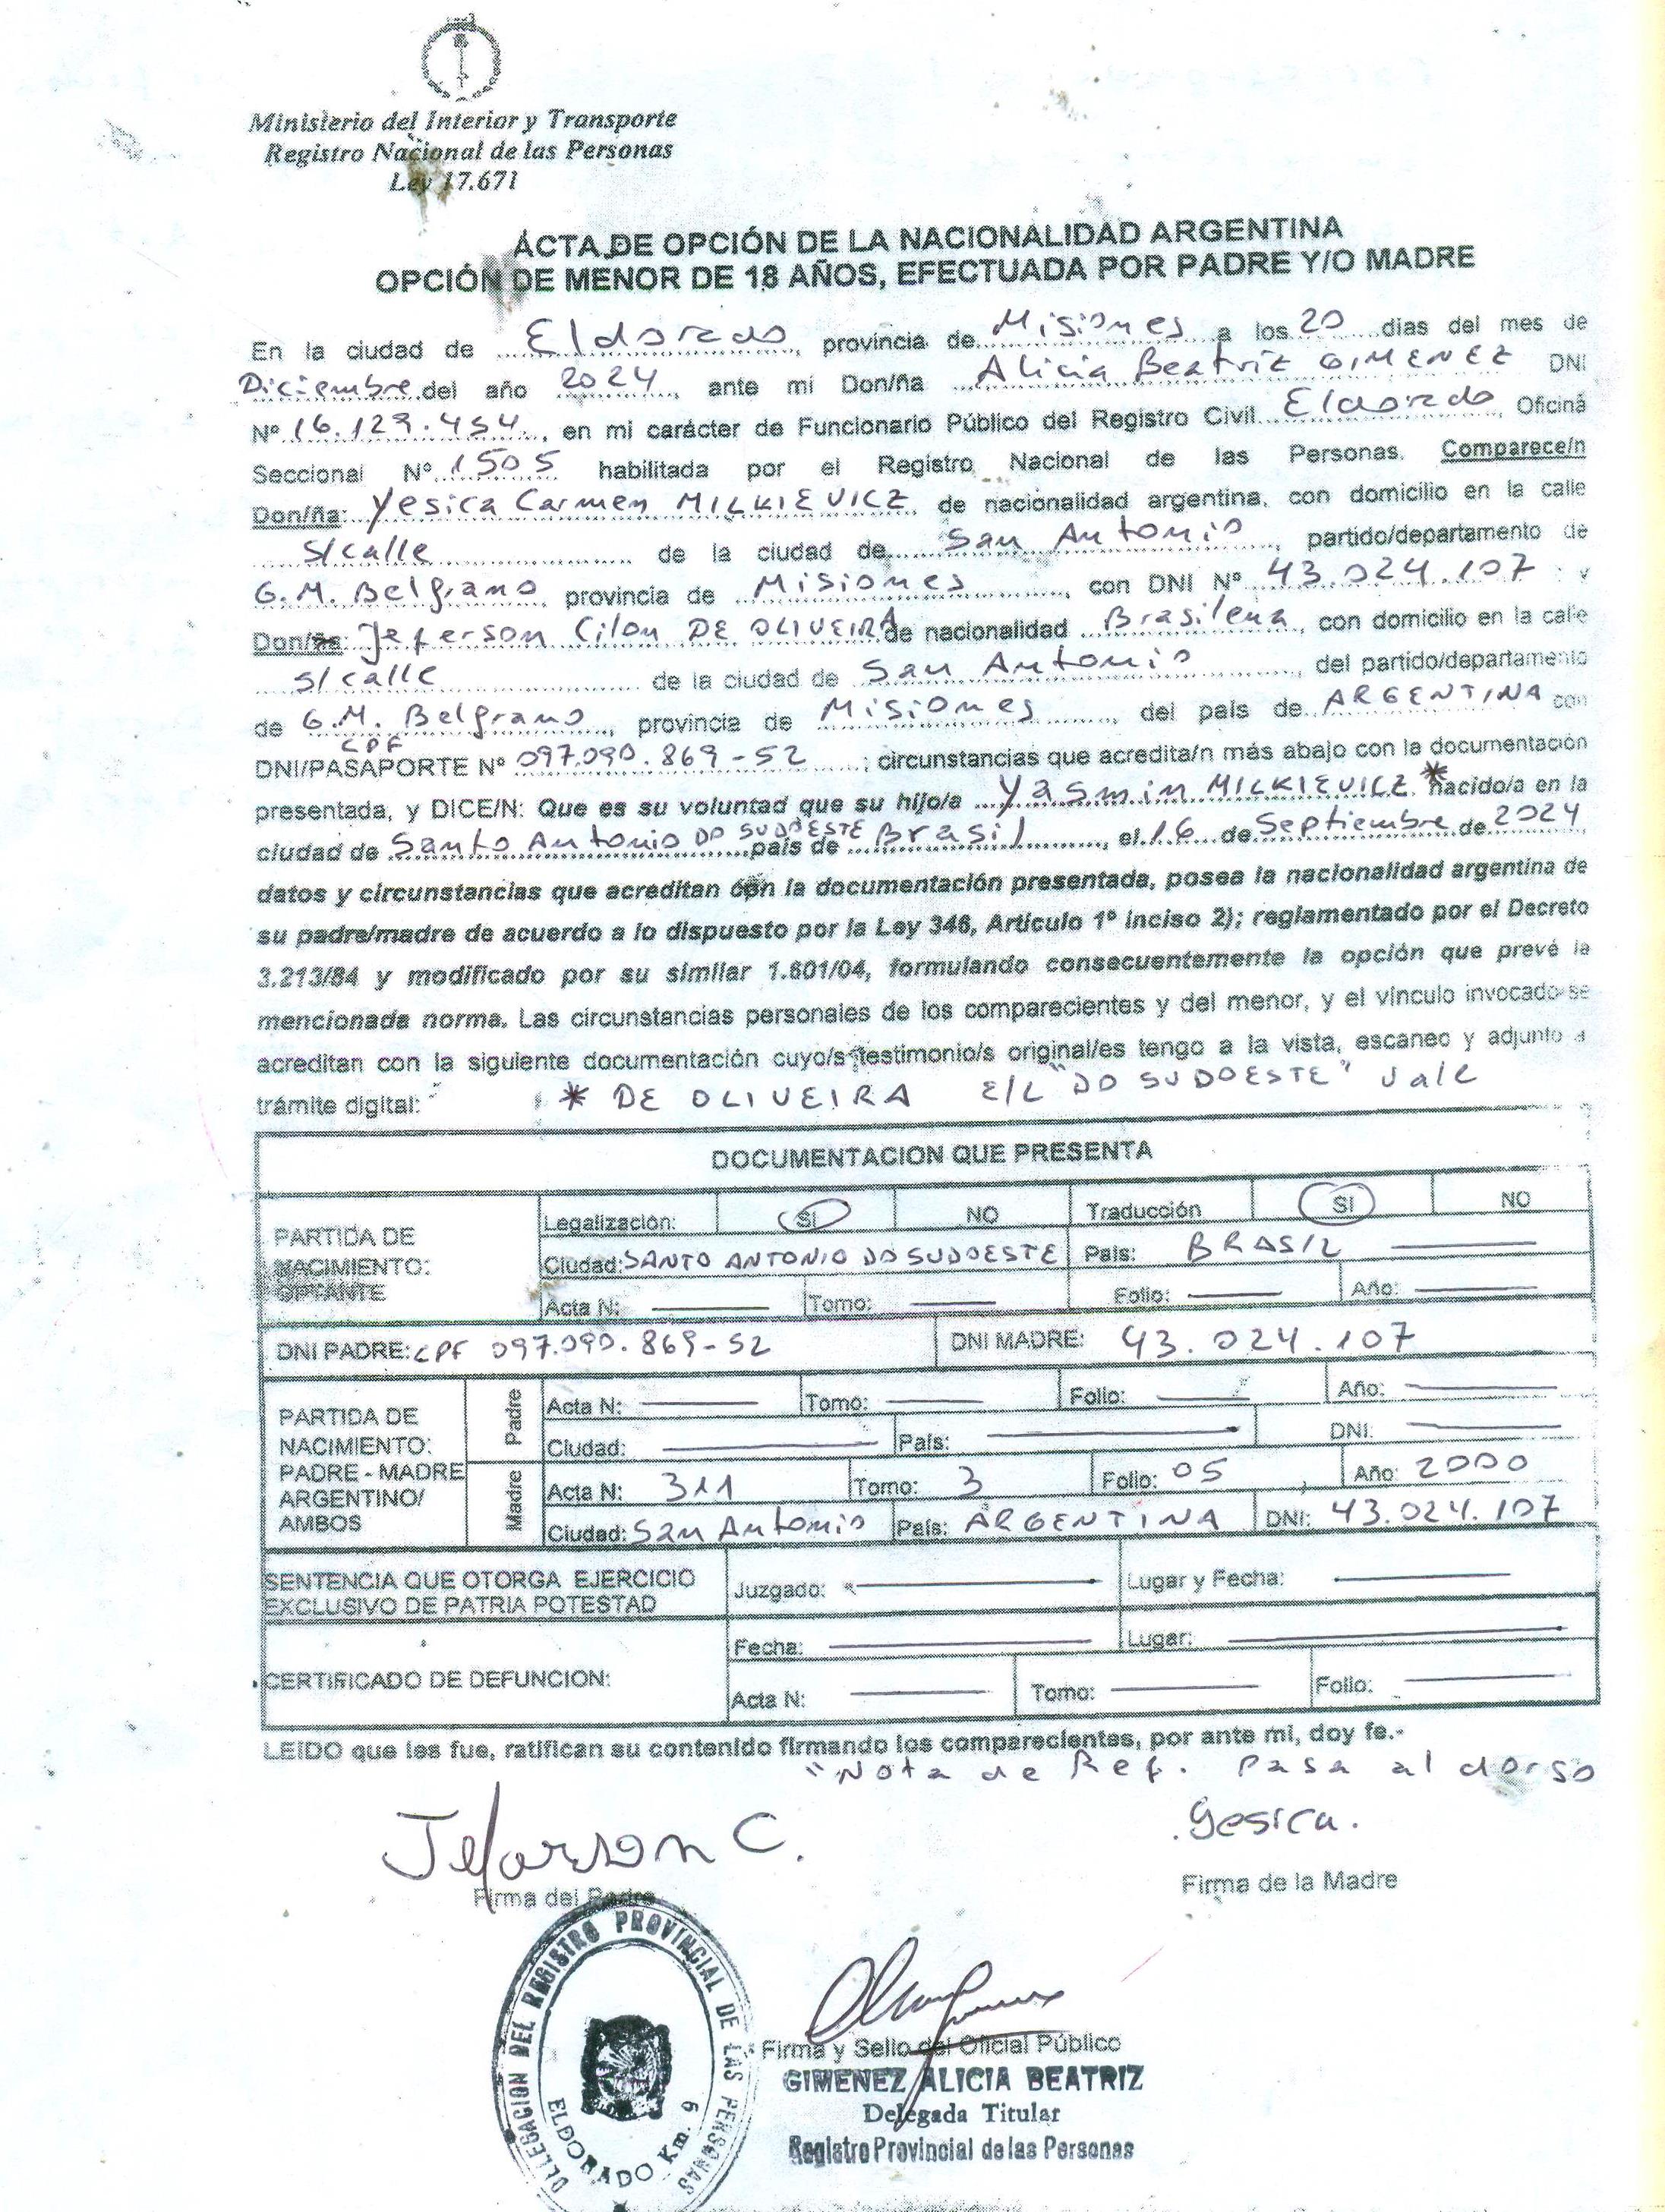 Ministerio del Interior y Transporte
Registro Nacional de las Personas
Ley 17.671
ACTA DE OPCIÓN DE LA NACIONALIDAD ARGENTINA
OPCIÓN DE MENOR DE 18 AÑOS, EFECTUADA POR PADRE Y/O MADRE
En la ciudad de Eldorado, provincia de Misiones a los 20 días del mes de
Diciembre del año 2024, ante mí Don/ña Alicia Beatriz GIMENEZ DNI
Nº 16.129.454, en mi carácter de Funcionario Público del Registro Civil Eldorado, Oficina
Seccional Nº 1505 habilitada por el Registro Nacional de las Personas. Comparece/n
Don/ña: Yesica Carmen MILKIEVICZ de nacionalidad argentina, con domicilio en la calle
S/calle de la ciudad de San Antonio, partido/departamento de
G.M. Belgrano provincia de Misiones, con DNI Nº 43.024.107; y
Don/ña: Jeferson Cilon DE OLIVEIRA de nacionalidad Brasilena, con domicilio en la calle
S/calle de la ciudad de San Antonio, del partido/departamento
de G.M. Belgrano, provincia de Misiones, del país de ARGENTINA con
CPF
DNI/PASAPORTE Nº 097.090.869-52; circunstancias que acredita/n más abajo con la documentación
presentada, y DICE/N: Que es su voluntad que su hijo/a Yasmin MILKIEVICZ * nacido/a en la
ciudad de Santo Antonio DO SUDOESTE país de Brasil, el 16 de Septiembre de 2024
datos y circunstancias que acreditan con la documentación presentada, posea la nacionalidad argentina de
su padre/madre de acuerdo a lo dispuesto por la Ley 346, Artículo 1º inciso 2); reglamentado por el Decreto
3.213/84 y modificado por su similar 1.601/04, formulando consecuentemente la opción que prevé la
mencionada norma. Las circunstancias personales de los comparecientes y del menor, y el vínculo invocado se
acreditan con la siguiente documentación cuyo/s testimonio/s original/es tengo a la vista, escaneo y adjunto a
trámite digital: * DE OLIVEIRA E/L "DO SUDOESTE" Vale
DOCUMENTACION QUE PRESENTA
PARTIDA DE NACIMIENTO: OPTANTE
Legalización: SI NO Traducción SI NO
Ciudad: SANTO ANTONIO DO SUDOESTE País: BRASIL
Acta N: Tomo: Folio: Año:
DNI PADRE: CPF 097.090.869-52 DNI MADRE: 43.024.107
PARTIDA DE NACIMIENTO: PADRE - MADRE ARGENTINO/ AMBOS
Padre
Acta N: Tomo: Folio: Año:
Ciudad: País: DNI:
Madre
Acta N: 311 Tomo: 3 Folio: 05 Año: 2000
Ciudad: San Antonio País: ARGENTINA DNI: 43.024.107
SENTENCIA QUE OTORGA EJERCICIO
EXCLUSIVO DE PATRIA POTESTAD
Juzgado: Lugar y Fecha:
CERTIFICADO DE DEFUNCION:
Fecha: Lugar:
Acta N: Tomo: Folio:
LEIDO que les fue, ratifican su contenido firmando los comparecientes, por ante mi, doy fe.-
"Nota de Ref. Pasa al dorso
Jeferson C.
Yesica.
Firma del Padre
Firma de la Madre
DELEGACION DEL REGISTRO PROVINCIAL DE LAS PERSONAS
ELDORADO Km. 9
Firma y Sello del Oficial Público
GIMENEZ ALICIA BEATRIZ
Delegada Titular
Registro Provincial de las Personas